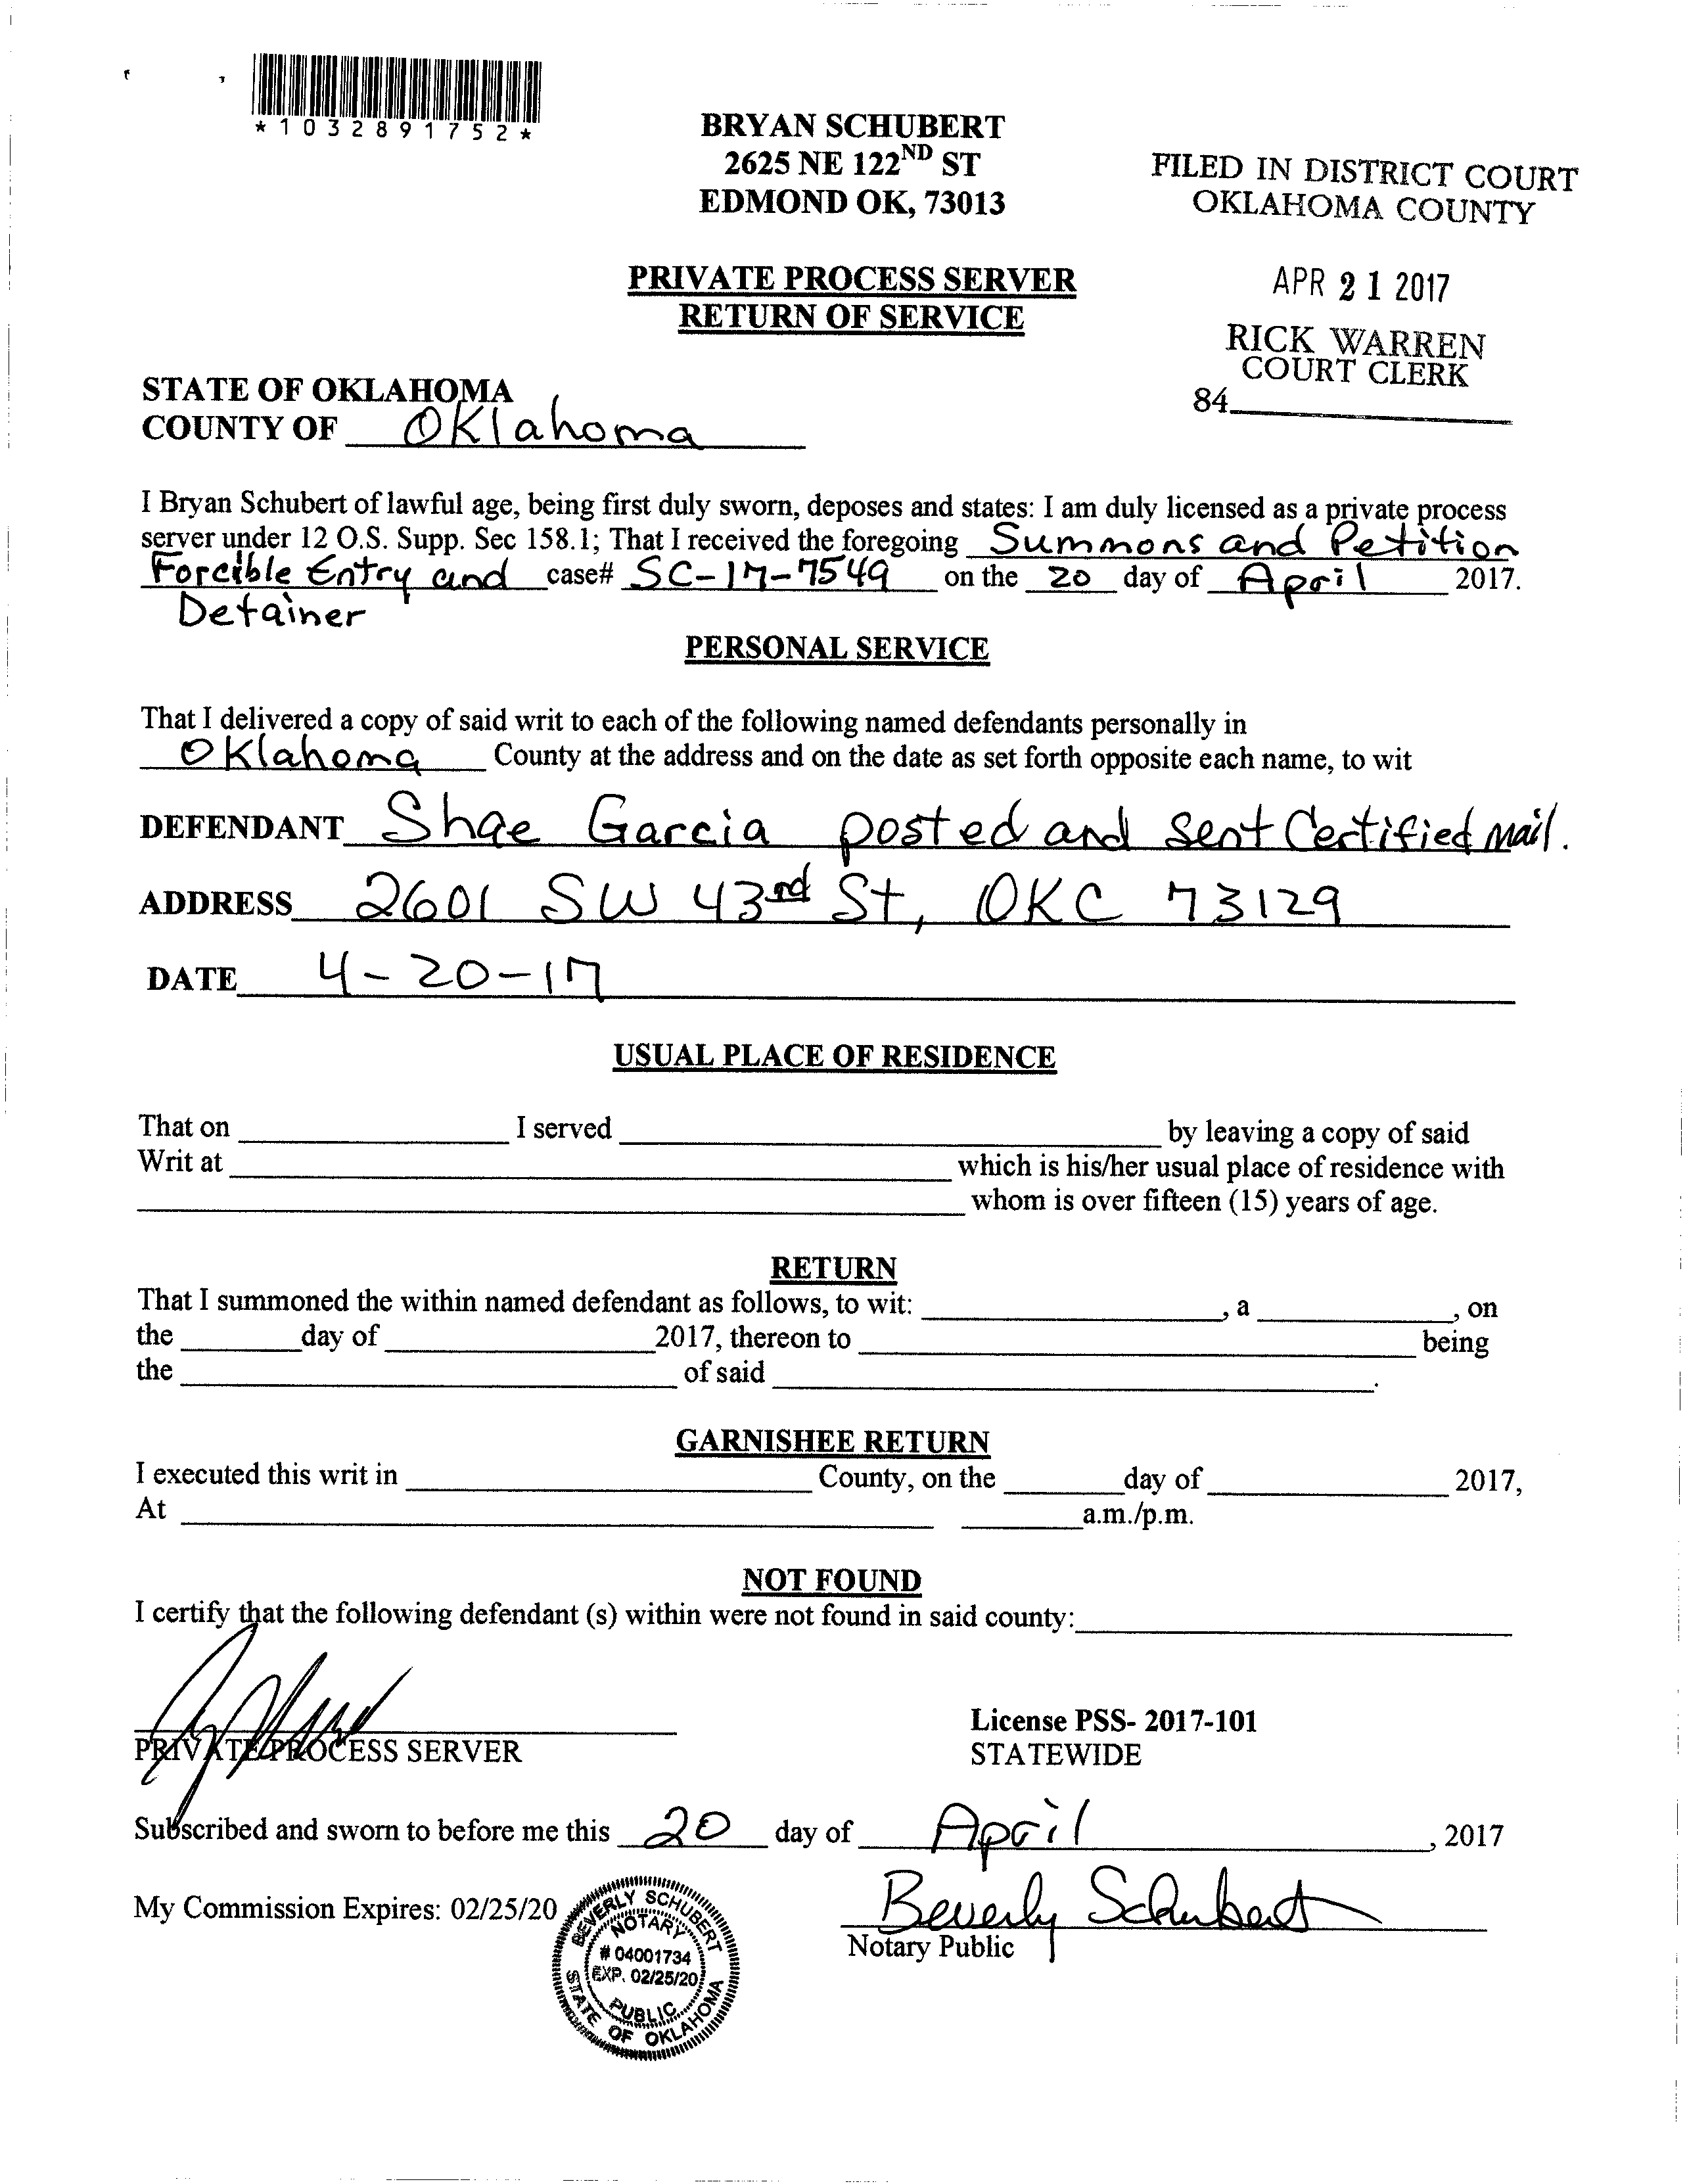 *1032891752*
BRYAN SCHUBERT
2625 NE 122ND ST
EDMOND OK, 73013
FILED IN DISTRICT COURT
OKLAHOMA COUNTY
APR 21 2017
RICK WARREN
COURT CLERK
84
PRIVATE PROCESS SERVER
RETURN OF SERVICE
STATE OF OKLAHOMA
COUNTY OF Oklahoma
I Bryan Schubert of lawful age, being first duly sworn, deposes and states: I am duly licensed as a private process
server under 12 O.S. Supp. Sec 158.1; That I received the foregoing Summons and Petition
Forcible Entry and case# SC-17-7549 on the 20 day of April 2017.
Detainer
PERSONAL SERVICE
That I delivered a copy of said writ to each of the following named defendants personally in
Oklahoma County at the address and on the date as set forth opposite each name, to wit
DEFENDANT Shae Garcia posted and sent Certified Mail.
ADDRESS 2601 SW 43rd St, OKC 73129
DATE 4-20-17
USUAL PLACE OF RESIDENCE
That on I served by leaving a copy of said
Writ at which is his/her usual place of residence with
whom is over fifteen (15) years of age.
RETURN
That I summoned the within named defendant as follows, to wit: , a , on
the day of 2017, thereon to being
the of said .
GARNISHEE RETURN
I executed this writ in County, on the day of 2017,
At a.m./p.m.
NOT FOUND
I certify that the following defendant (s) within were not found in said county:
PRIVATE PROCESS SERVER
License PSS- 2017-101
STATEWIDE
Subscribed and sworn to before me this 20 day of April , 2017
My Commission Expires: 02/25/20
Beverly Schubert
Notary Public
BEVERLY SCHUBERT
NOTARY
# 04001734
EXP. 02/25/20
PUBLIC
STATE OF OKLAHOMA